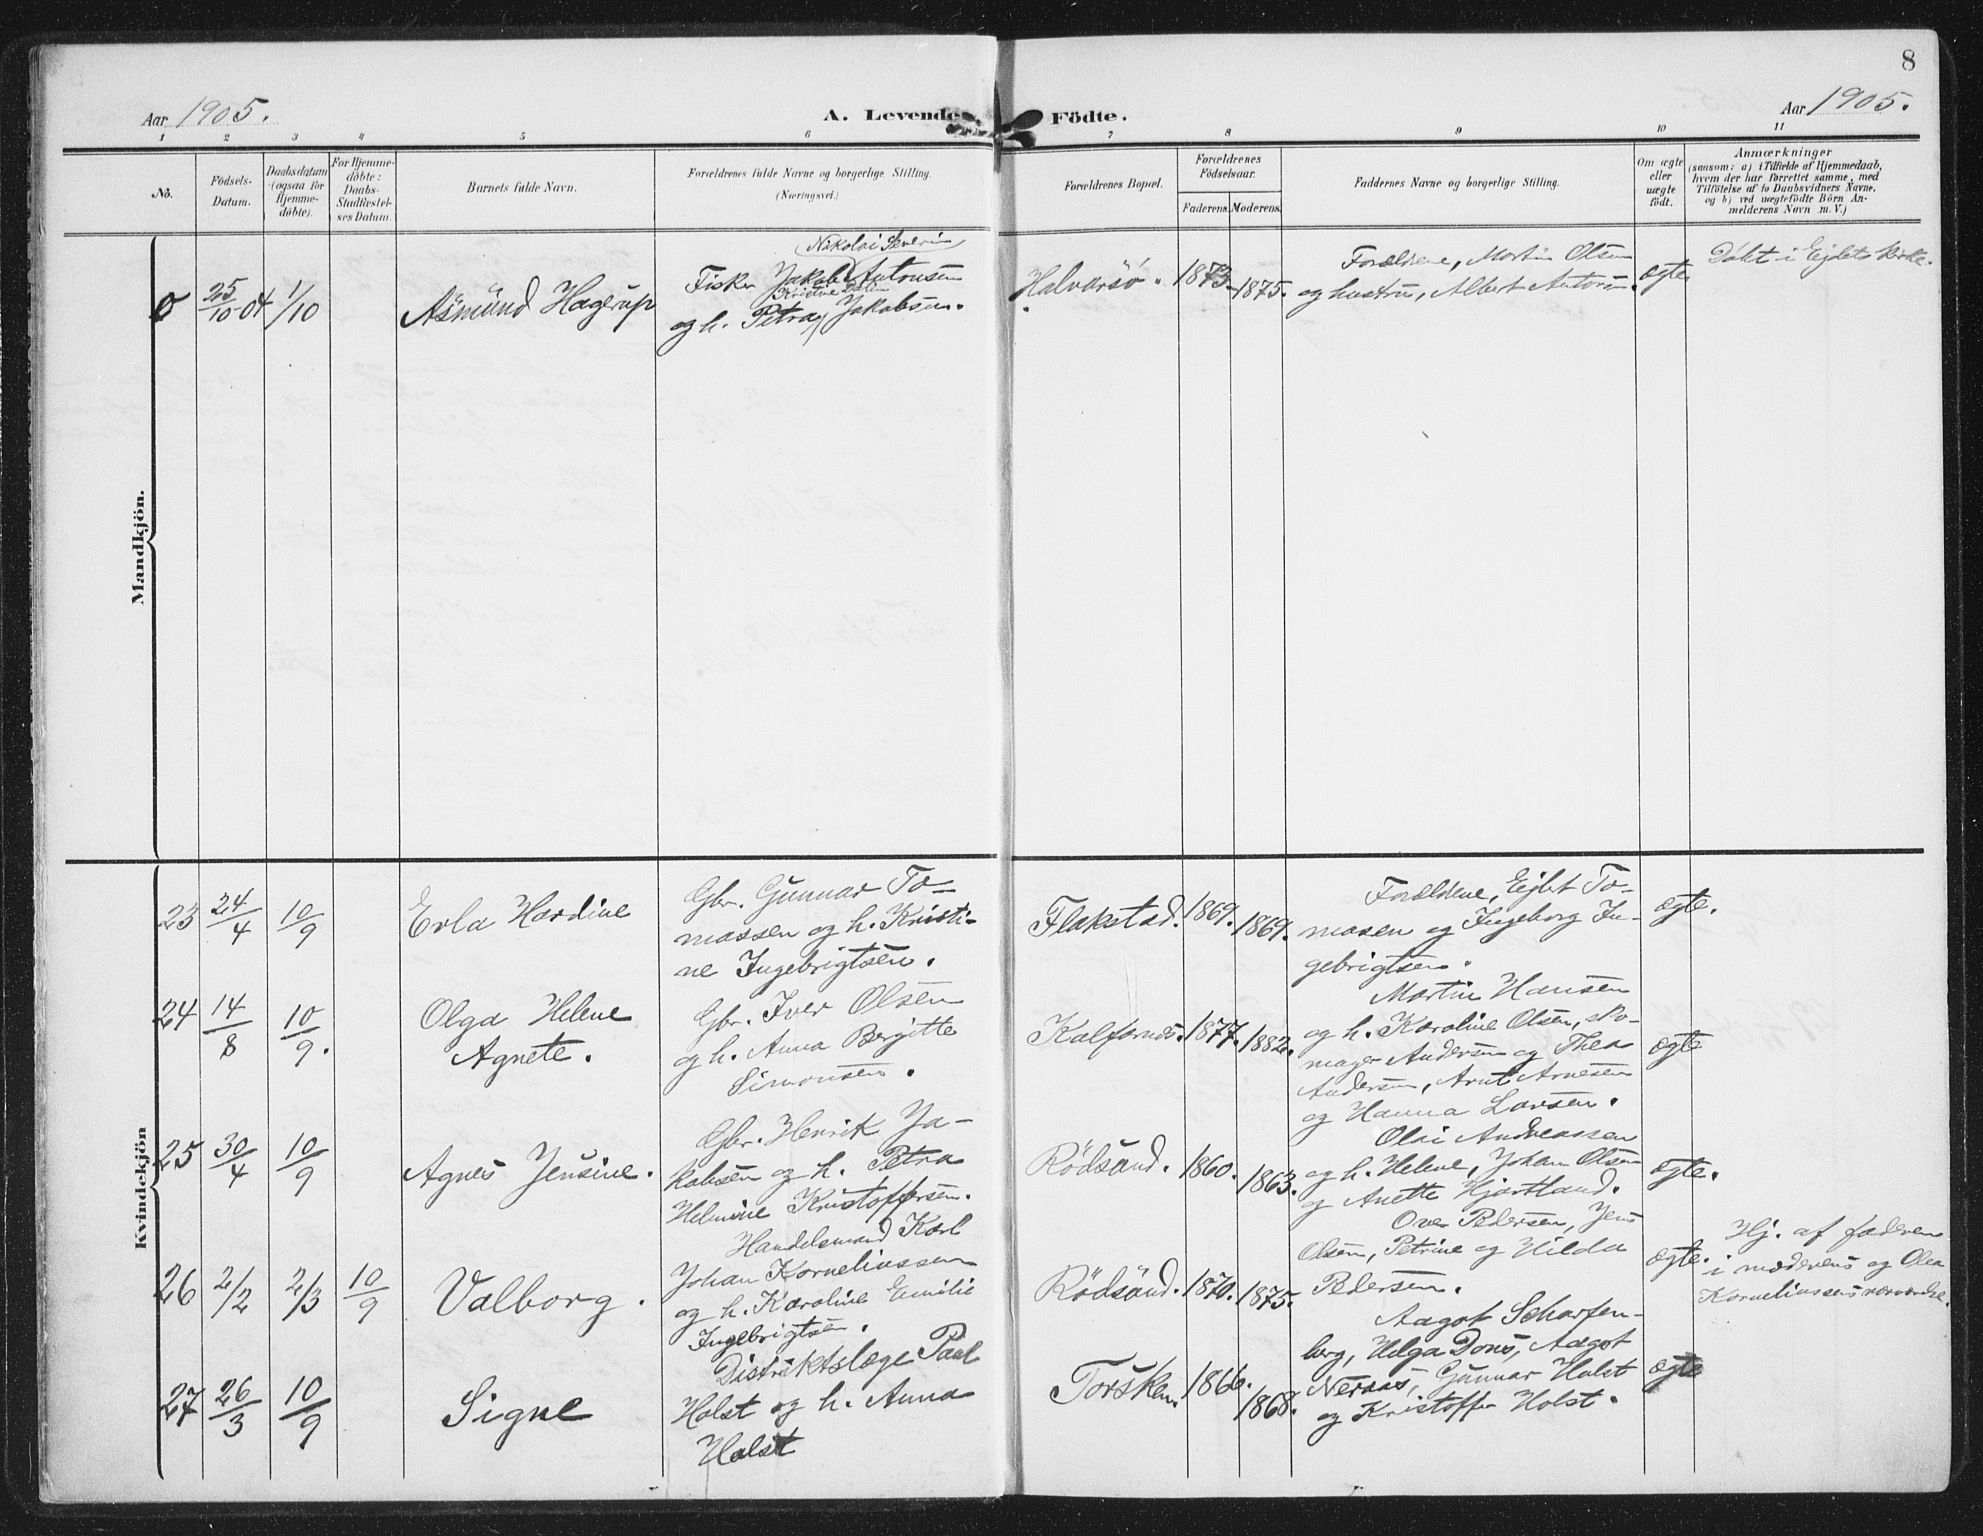 8
Aar 1905.
A. Levende Födte.
Aar 1905.
1 2 3 4 5 6 7 8 9 10 11
No.
Födsels-
Datum.
Daabsdatum
(ogsaa for
Hjemme-
döbte).
For Hjemme-
döbte:
Daabs-
Stadfæstel-
ses Datum.
Barnets fulde Navn.
Forældrenes fulde Navne og borgerlige Stilling.
(Næringsvei.)
Forældrenes Bopæl.
Forældrenes
Födselsaar.
Faderens. Moderens.
Faddernes Navne og borgerlige Stilling.
Om ægte
eller
uægte
födt.
Anmærkninger
(saasom: a) i Tilfælde af Hjemmedaab,
hvem der har forrettet samme, med
Tilföielse af to Daabsvidners Navne.
og b) ved uægtefödte Börn An-
melderens Navn m. V.)
Mandkjön.
0
25/10-04
1/10
Asmund Hagerup
Nikolai Severin
Fisker Jakob Antonsen
Kristine
og h. Petra Jakobsen.
Halvarsö.
1873
1875.
Forældrene, Martin Olsen
og hustru, Albert Antonsen.
ægte
Döbt i Ejdets Kirke.
Kvindekjön
23
24/4
10/9
Erla Hardine
Gbr. Gunnar To-
massen og h. Kristi-
ne Ingebrigtsen.
Flakstad.
1869.
1869.
Forældrene, Ejlert To-
masen og Ingeborg In-
gebrigtsen.
ægte.
24
14/8
10/9.
Olga Helene
Agnete.
Gbr. Iver Olsen
og h. Anna Bergitte
Simonsen.
Kalfarnes.
1877.
1882.
Martin Hansen
og h. Karoline Olsen, sko-
mager Andersen og Thea
Andersen, Arnt Arnesen
og Hanna Larsen.
ægte
25
30/4
10/9
Agnes Jensine.
Gbr. Henrik Ja-
kobsen og h. Petra
Helmine Kristoffersen.
Rödsand.
1860.
1863.
Olai Andreassen
og h. Helene, Johan Olsen
og Anette Hjartland.
ægte.
26
2/2
2/3
10/9
Valborg.
Handelsmand Karl
Johan Korneliussen
og h. Karoline Emilie
Ingebrigtsen.
Rödsand.
1870.
1875.
Over Pedersen, Jens
Olsen, Petrine og Hilda
Pedersen.
ægte.
Hj. af faderen
i moderens og Olea
Korneliussens nærværelse.
27
26/3
10/9
Signe
Distriktslæge Paul
Holst og h. Anna
Holst
Torsken.
1866.
1868.
Aagot Scharfen-
berg, Helga Dons, Aagot
Neraas, Gunnar Holst
og Kristoffer Holst.
ægte